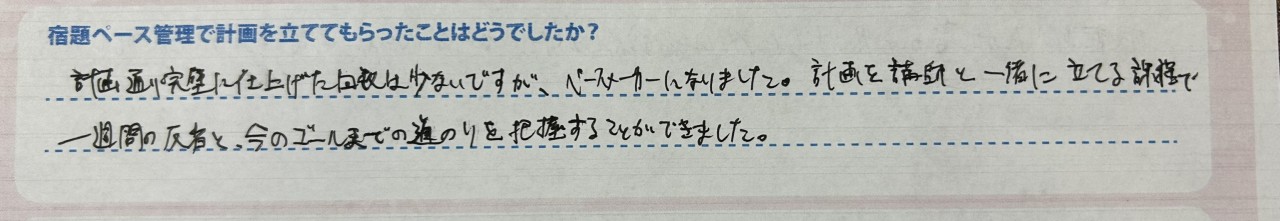 宿題ペース管理で計画を立ててもらったことはどうでしたか？
計画通り完璧に仕上げた回数は少ないですが、ペースメーカーになりました。計画を講師と一緒に立てる課程で
一週間の反省と、今のゴールまでの道のりを把握することができました。